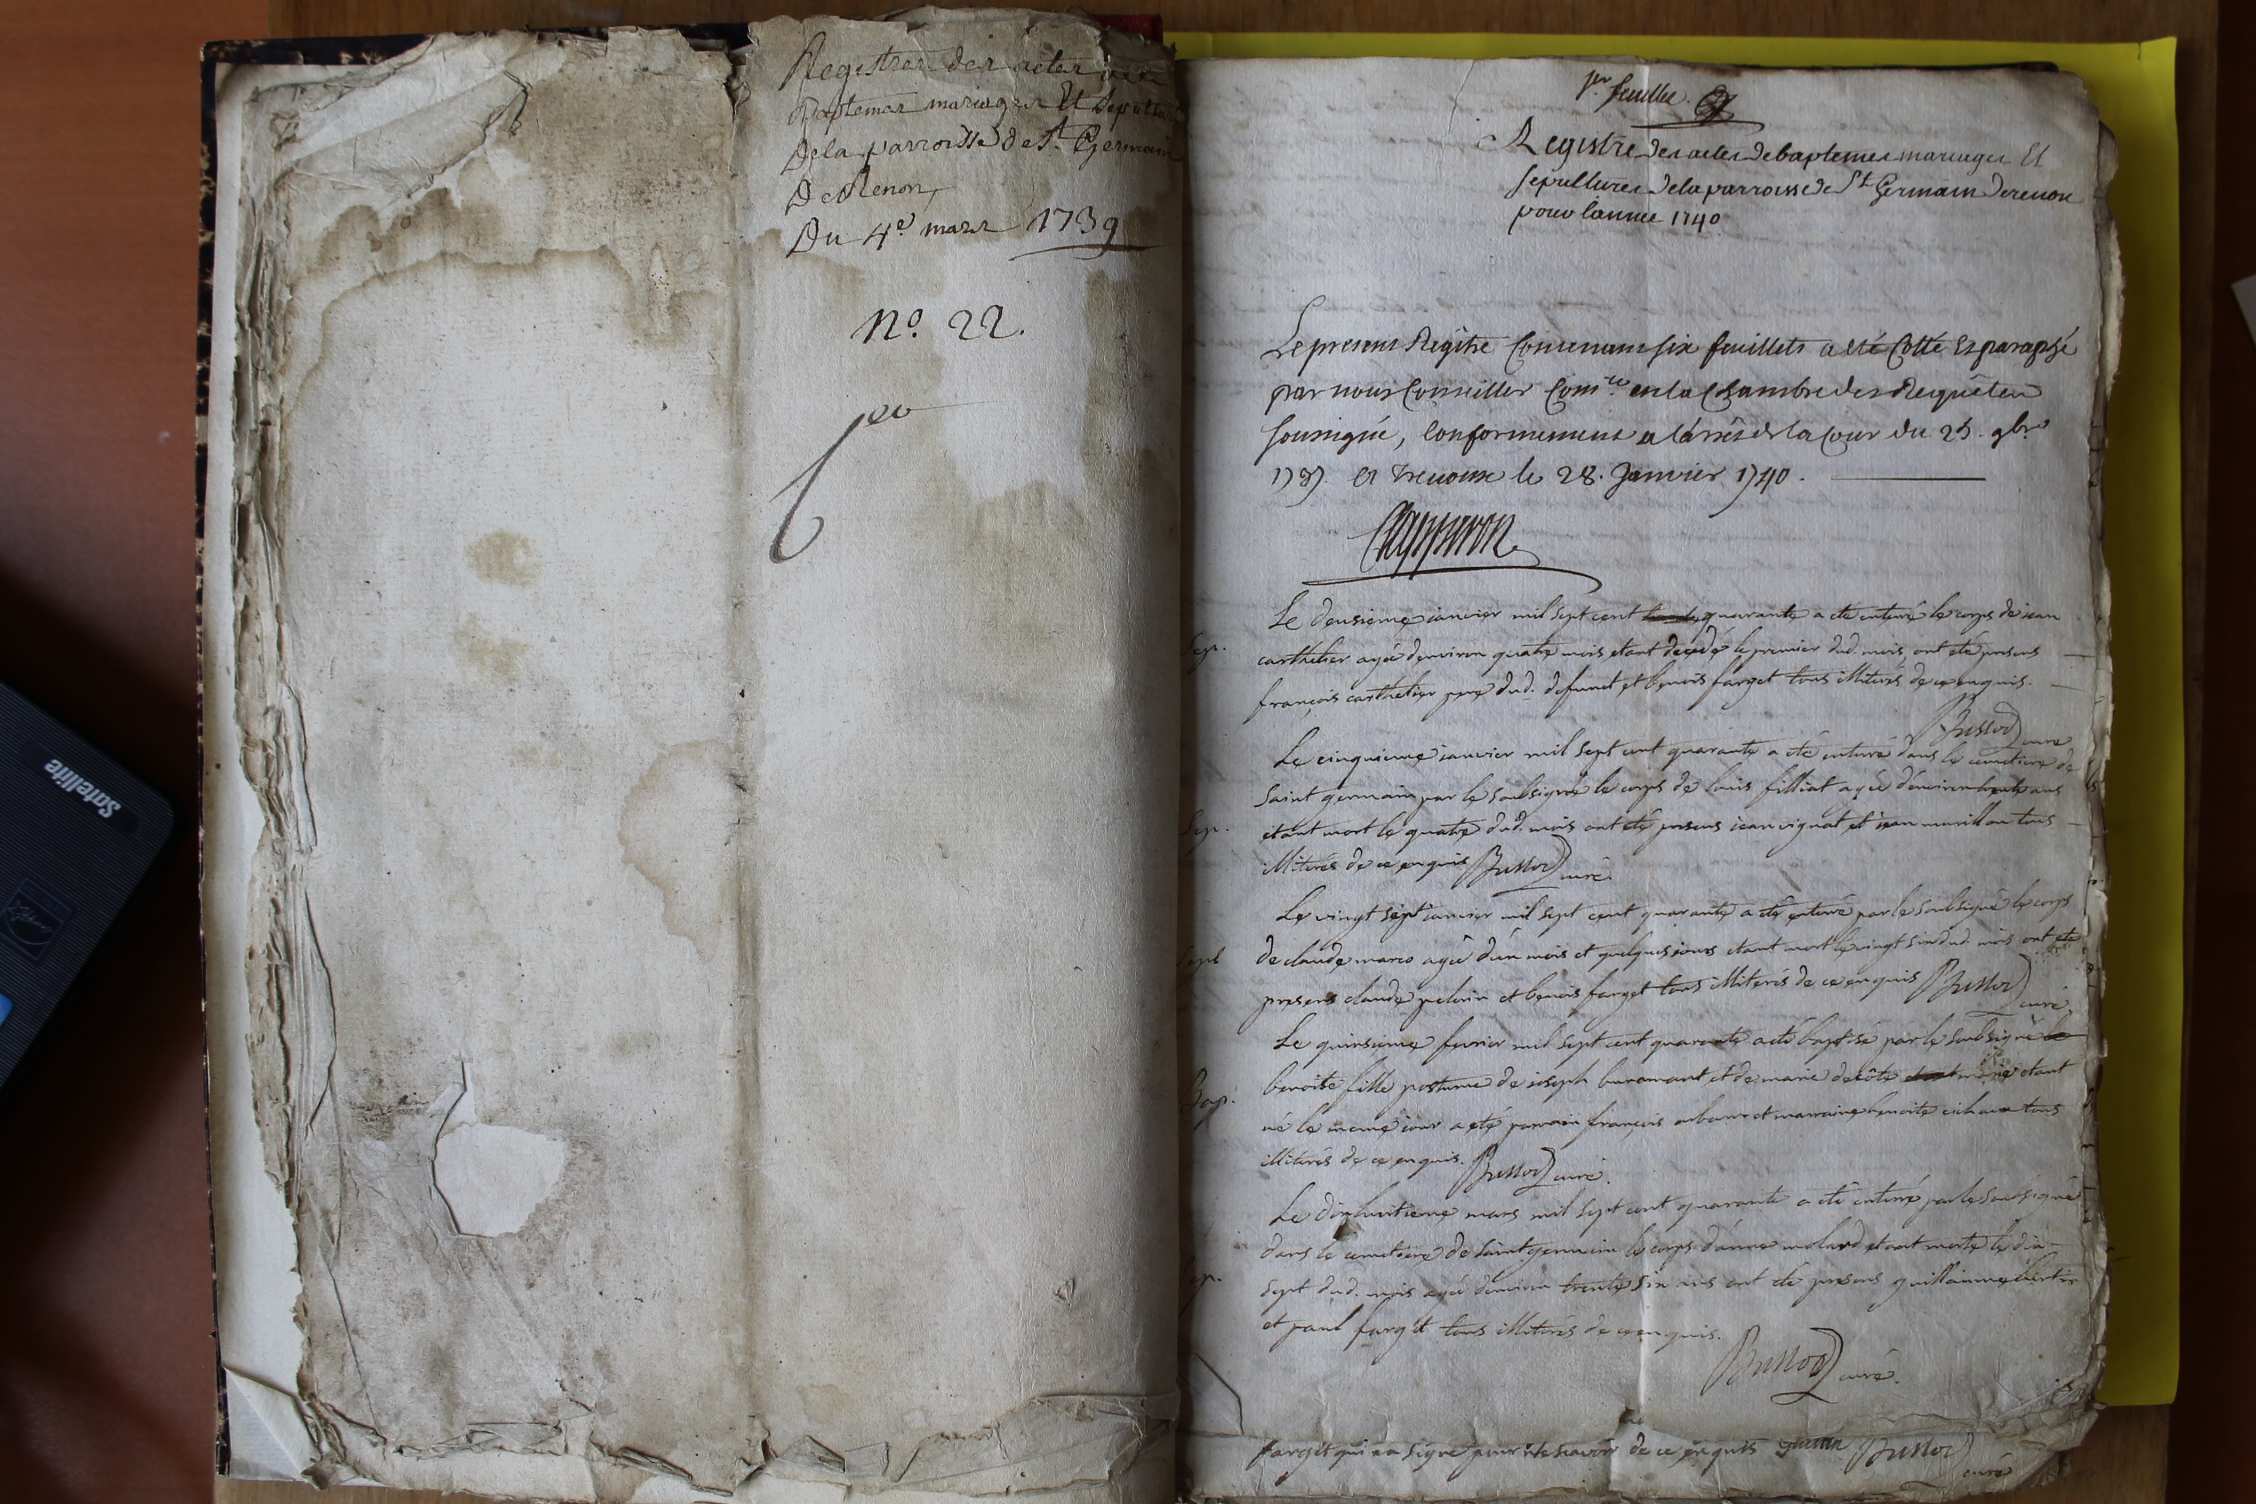 Registre des actes de
Baptemes mariages Et Sepultures
De la parroisse de St. Germain
De Renon,
Du 4e. mars 1739
No. 22.
Satellite
1er feuillet.
Registre des actes de baptemes mariages Et
sepultures de la parroisse de St Germain de renon
pour l'annee 1740
Le present Regitre Contenant six feuillets a eté Cotté Et paraphé
par nous Conseiller Comre. en la Chambre des Requêtes
soussigné, conformement a l'arrêt de la Cour du 25. 9bre
a Trevoux le 28. Janvier 1740.
Sep.
Le deusieme ianvier mil sept cent quarante a ete enterré le corps de iean
carthelier agé d'environ quatre mois etant decedé le premier dud. mois, ont eté presens
françois carthelier pere dud. defunct et benois farget tous illiterés de ce enquis.
Bussod curé
Sep.
Le cinquieme ianvier mil sept cent quarante a eté enterré dans le cemetiere de
saint germain par le soubsigné le corps de louis filliat agé d'environ trente ans
etant mort le quatre dud. mois ont eté presens iean vignat et iean tous
illiterés de ce enquis Bussod curé.
Sep
Le vingt sept ianvier mil sept cent quarante a eté enterré par le soubsigné le corps
de claude agé d'un mois et quelques iours etant mort le vingt six dud. mois ont eté
presens claude et benois farget tous illiterés de ce enquis Bussod curé
Bap.
Le quinsieme fevrier mil sept cent quarante a eté baptisé par le soubsigné
benoite fille postume de ioseph buromant et de marie etant
né le meme iour a eté parrain françois et marraine benoite tous
illiterés de ce enquis. Bussod curé.
Sep.
Le dixhuitieme mars mil sept cent quarante a eté enterré par le soubsigné
dans le cemetiere de saint germain le corps d'anne molard etant morte le dix
sept dud. mois agé d'environ trente six ans ont eté presens guillaume
et paul farget tous illiterés de ce enquis.
Bussod curé.
farget qui n'a signé pour ne scavoir de ce enquis Bussod curé